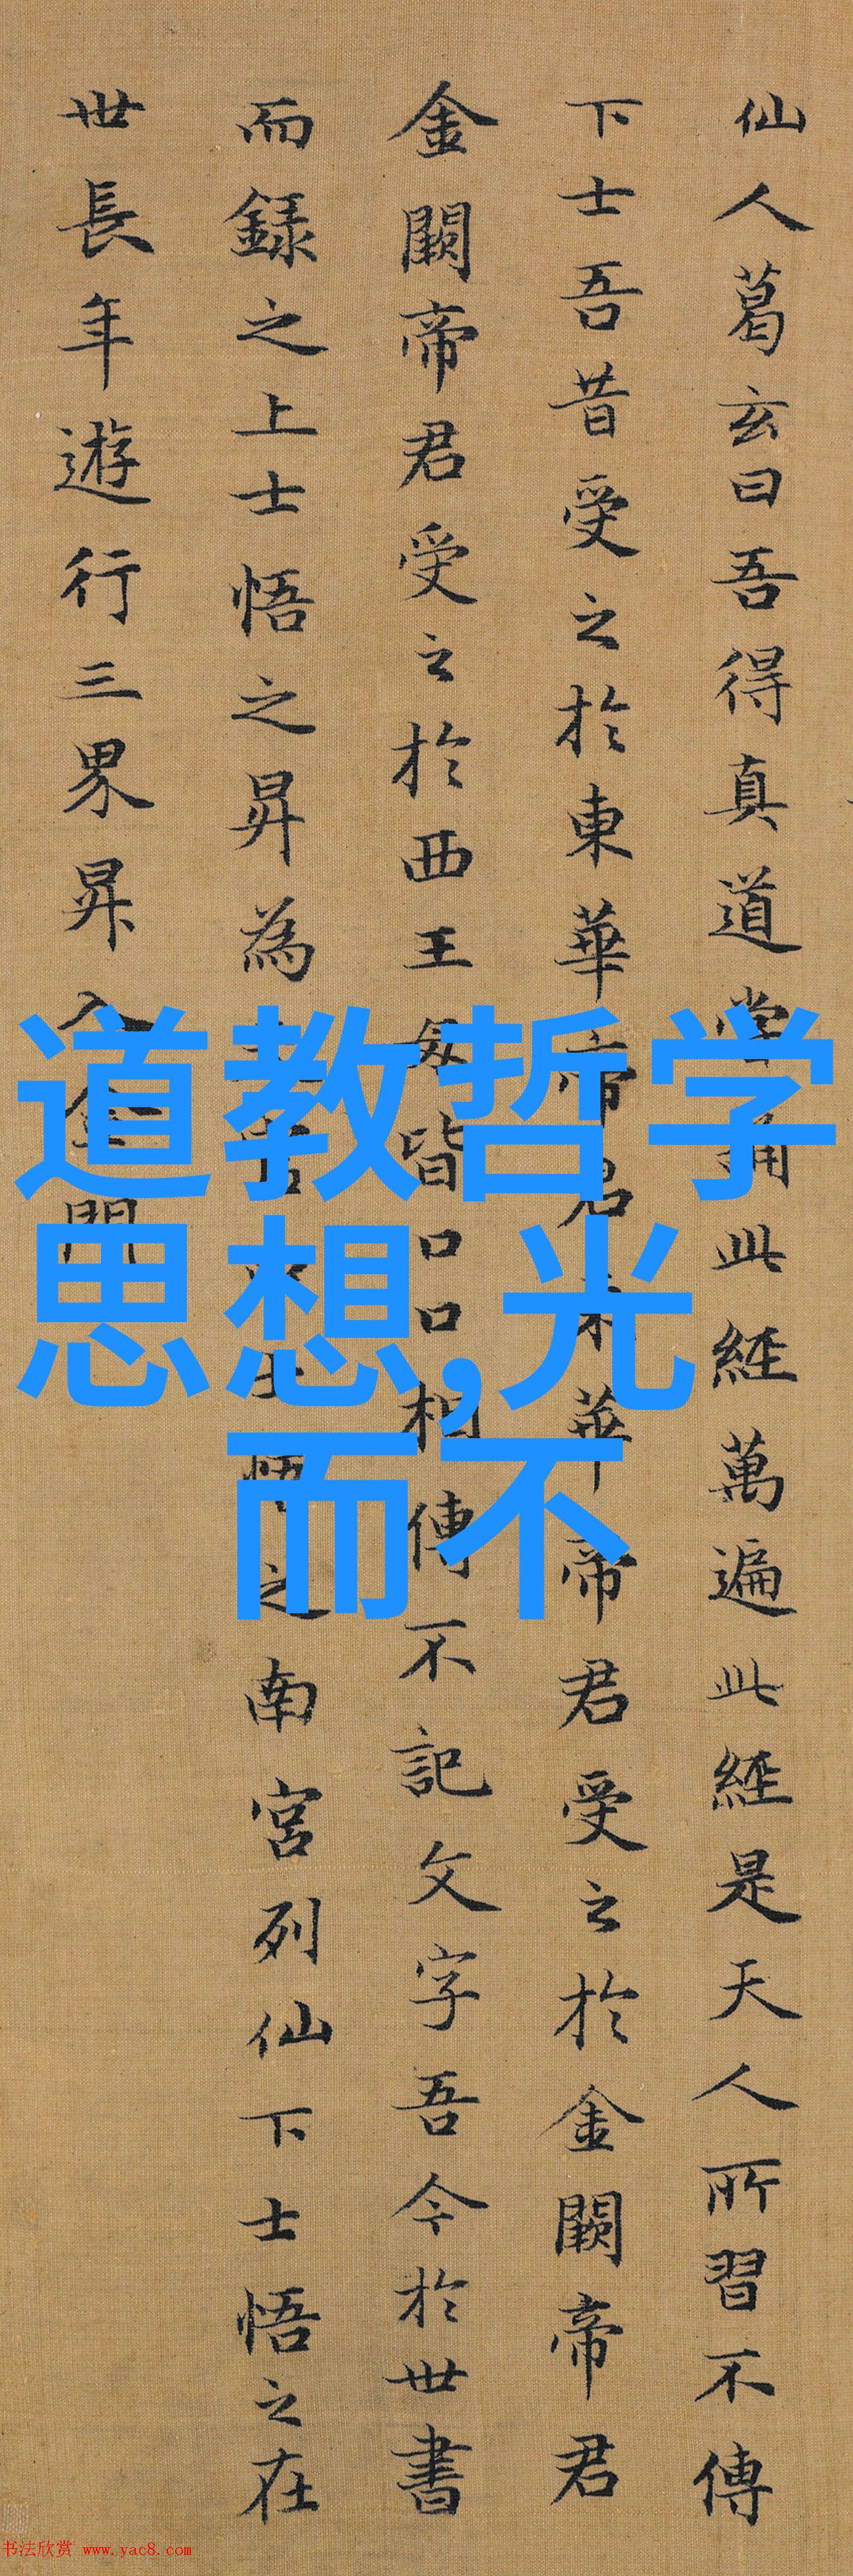 仙人葛玄曰吾得真道常誦此經萬遍此經是天人所習不傳
下士吾昔受之於東華帝君東華帝君受之於金闕帝君
金闕帝君受之於西王母皆口口相傳不記文字吾今於世書
而録之上士悟之昇為天官中士悟之南宮列仙下士悟之在
世長年遊行三界昇入金門
道教哲学
思想,光
而不
书法欣赏 www.yac8.com